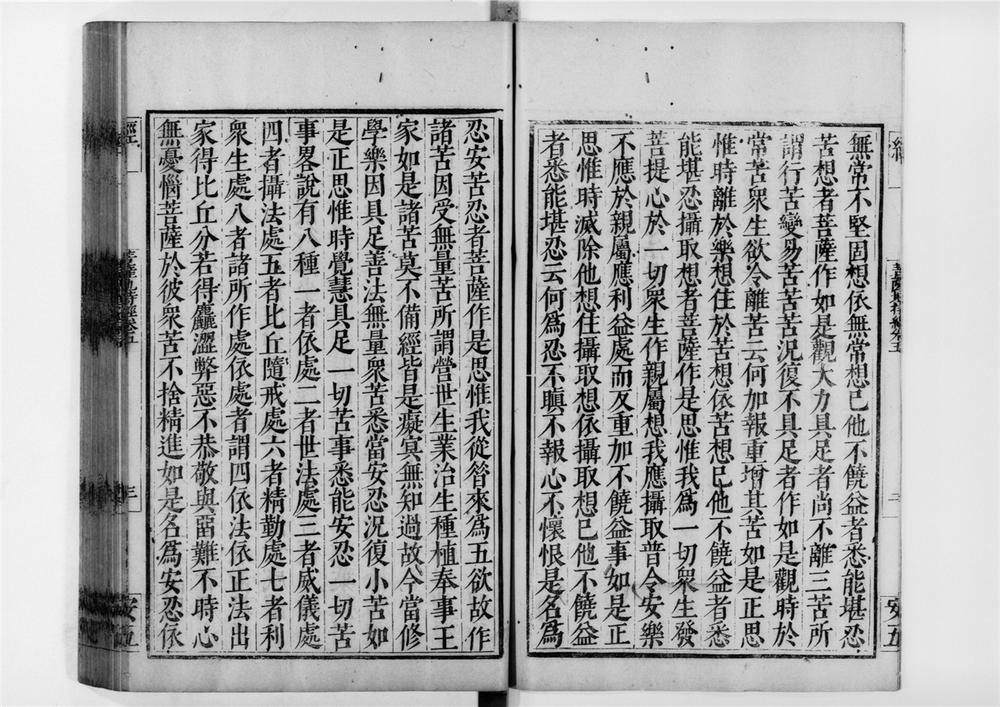 無常不堅固想依無常想已他不饒益者悉能堪忍
苦想者菩薩作如是觀大力具足者尚不離三苦所
謂行苦變易苦苦苦況復不具足者作如是觀時於
常苦衆生欲令離苦云何加報重增其苦如是正思
惟時離於樂想住於苦想依苦想已他不饒益者悉
能堪忍攝取想者菩薩作是思惟我爲一切衆生發
菩提心於一切衆生作親屬想我應攝取普令安樂
不應於親屬應利益處而反重加不饒益事如是正
思惟時滅除他想住攝取想依攝取想已他不饒益
者悉能堪忍云何爲忍不瞋不報心不懷恨是名爲
忍安苦忍者菩薩作是思惟我從昝來爲五欲故作
諸苦因受無量苦所謂營世生業治生種植奉事王
家如是諸苦莫不備經皆是癡冥無知過故今當修
學樂因具足善法無量衆苦悉當安忍況復小苦如
是正思惟時覺慧具足一切苦事悉能安忍一切苦
事畧說有八種一者依處二者世法處三者威儀處
四者攝法處五者比丘隨戒處六者精勤處七者利
衆生處八者諸所作處依處者謂四依法依正法出
家得比丘分若得麤澀弊惡不恭敬與畱難不時心
無憂惱菩薩於彼衆苦不捨精進如是名爲安忍依
經
三
安五